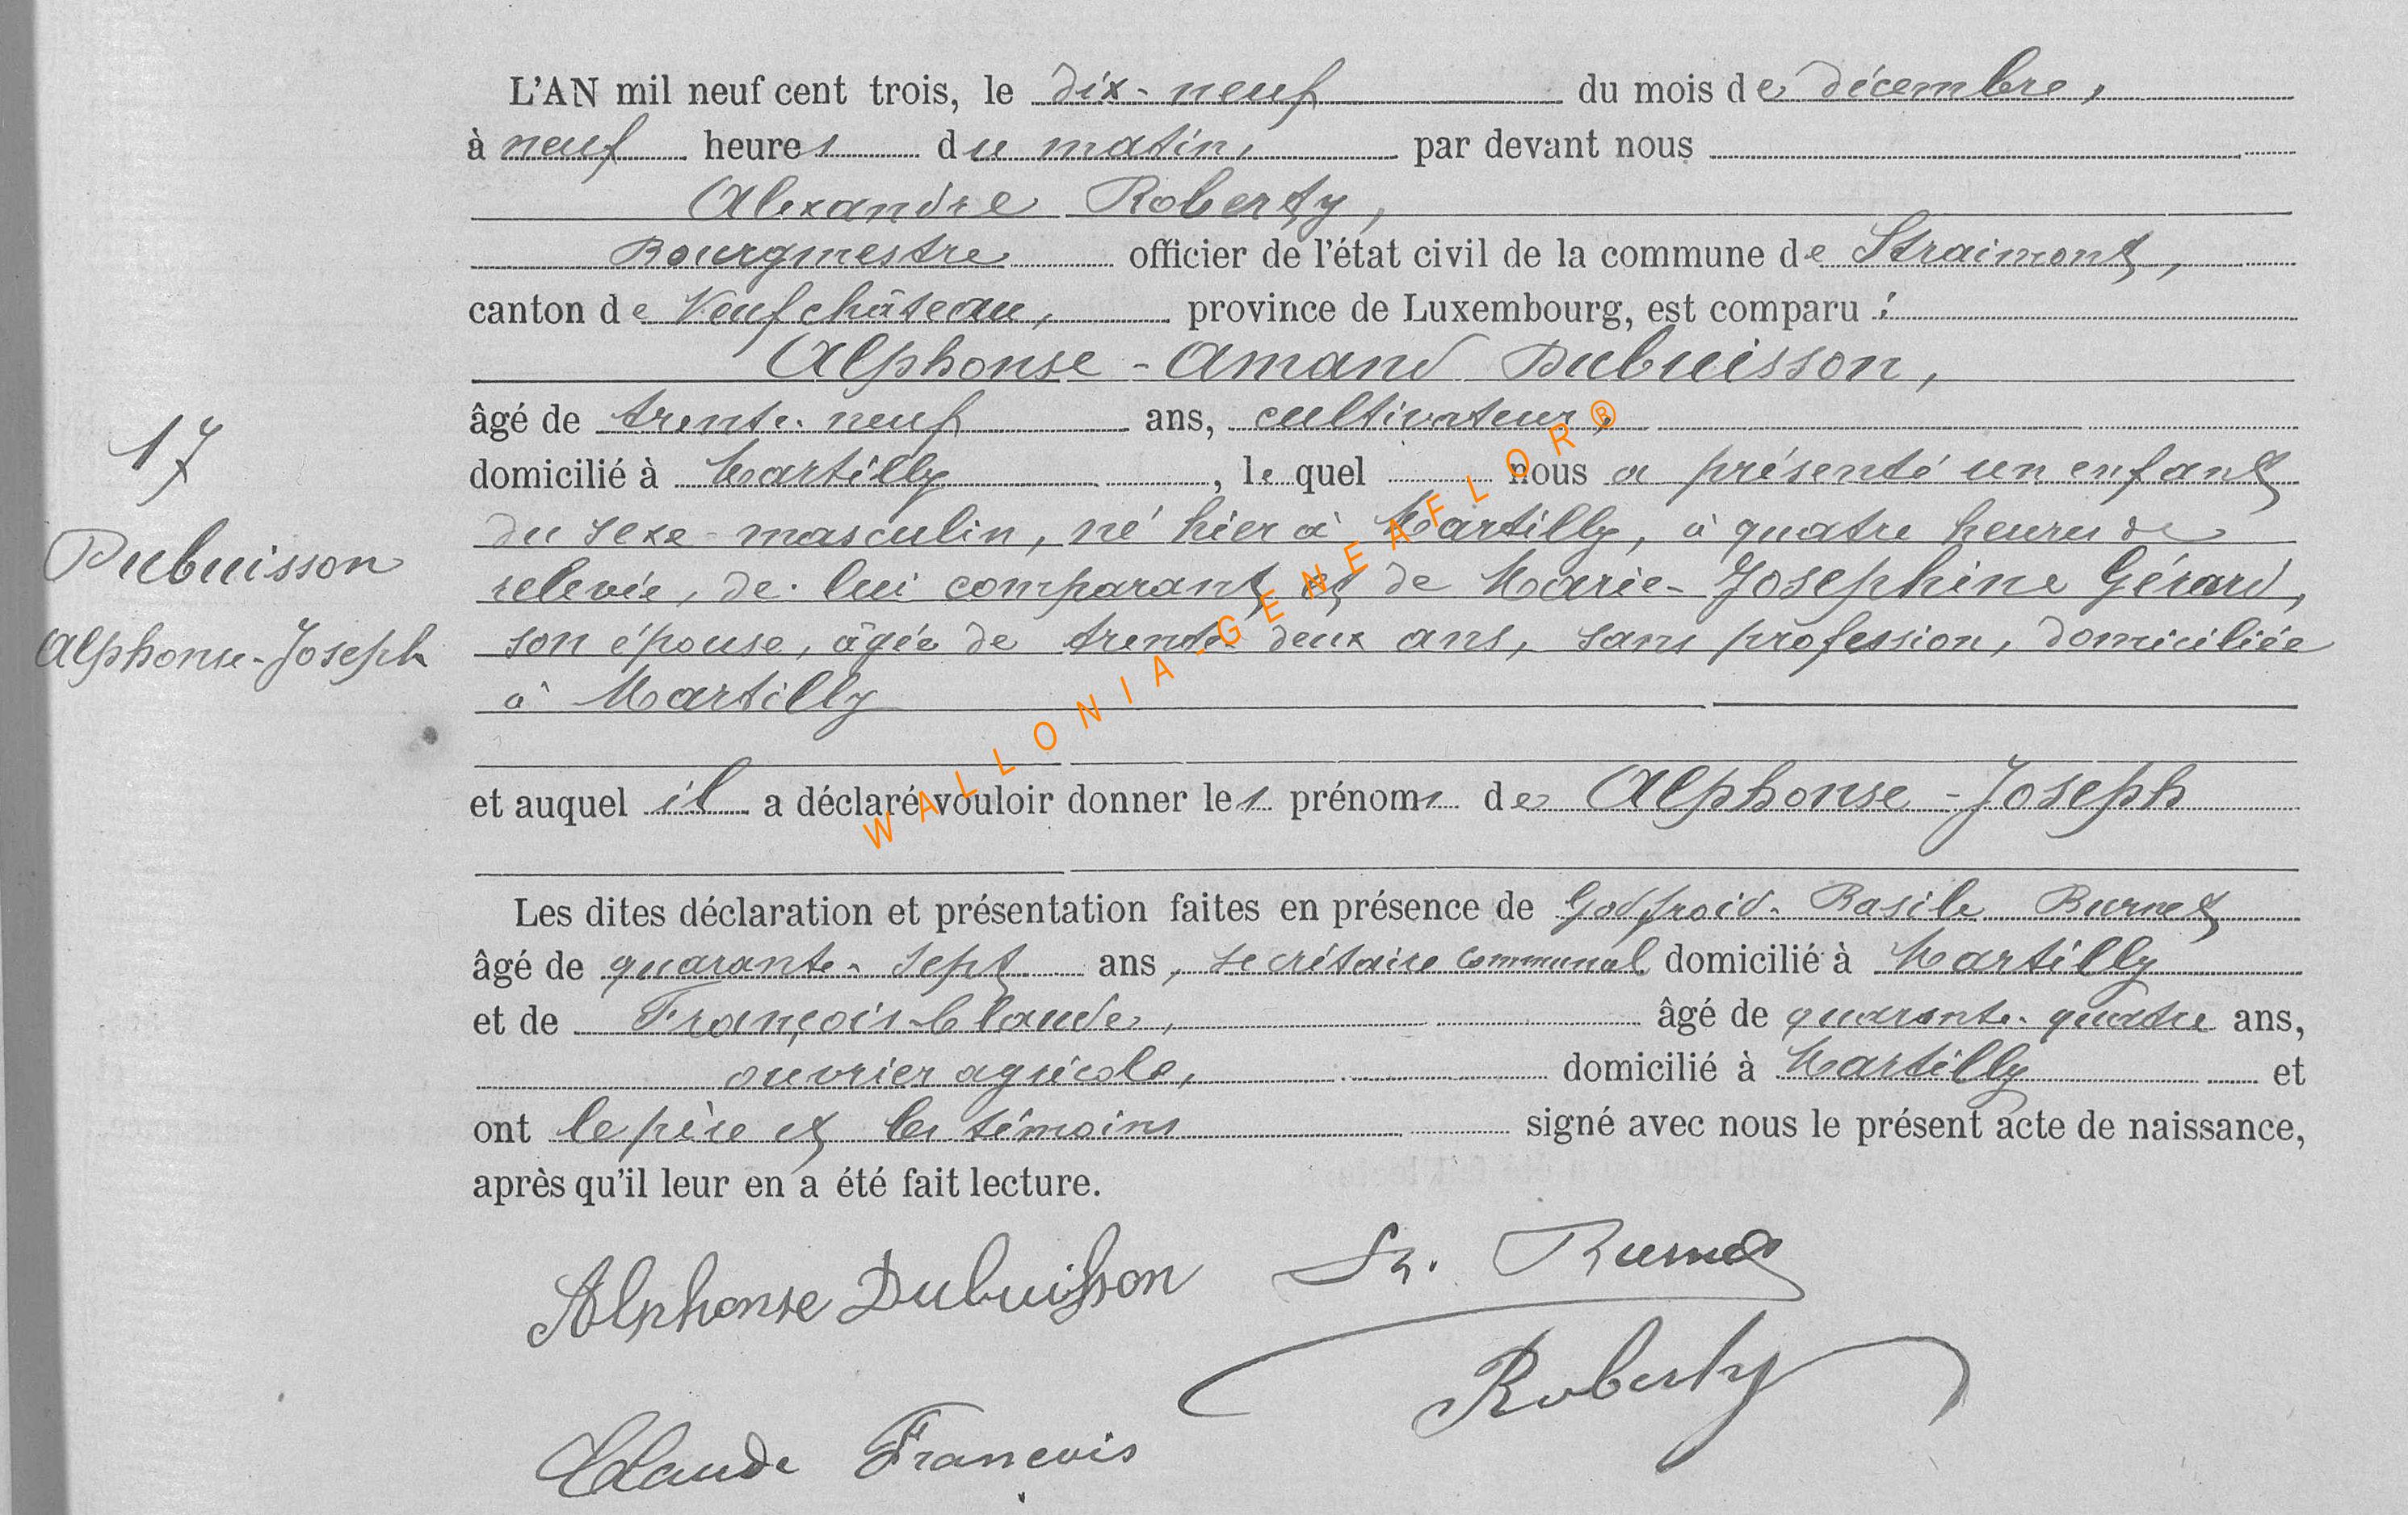 L'AN mil neuf cent trois, le dix-neuf du mois de décembre,
à neuf heures du matin, par devant nous
Alexandre Roberty,
Bourgmestre officier de l'état civil de la commune de Straimont,
canton de Neufchâteau, province de Luxembourg, est comparu :
Alphonse-Amand Dubuisson,
âgé de trente-neuf ans, cultivateur,
domicilié à Martilly, le quel nous a présenté un enfant
du sexe masculin, né hier à Martilly, à quatre heures de
relevée, de lui comparant et de Marie-Joséphine Gérard,
son épouse, âgée de trente-deux ans, sans profession, domiciliée
à Martilly
et auquel il a déclaré vouloir donner les prénoms de Alphonse-Joseph
Les dites déclaration et présentation faites en présence de Godfroid-Basile Burnet
âgé de quarante-sept ans, secrétaire communal domicilié à Martilly
et de François Claude, âgé de quarante-quatre ans,
ouvrier agricole, domicilié à Martilly et
ont le père et les témoins signé avec nous le présent acte de naissance,
après qu'il leur en a été fait lecture.
17
Dubuisson
Alphonse-Joseph
Alphonse Dubuisson Burnet
Roberty
Claude Francois
WALLONIA-GENEAFLOR®